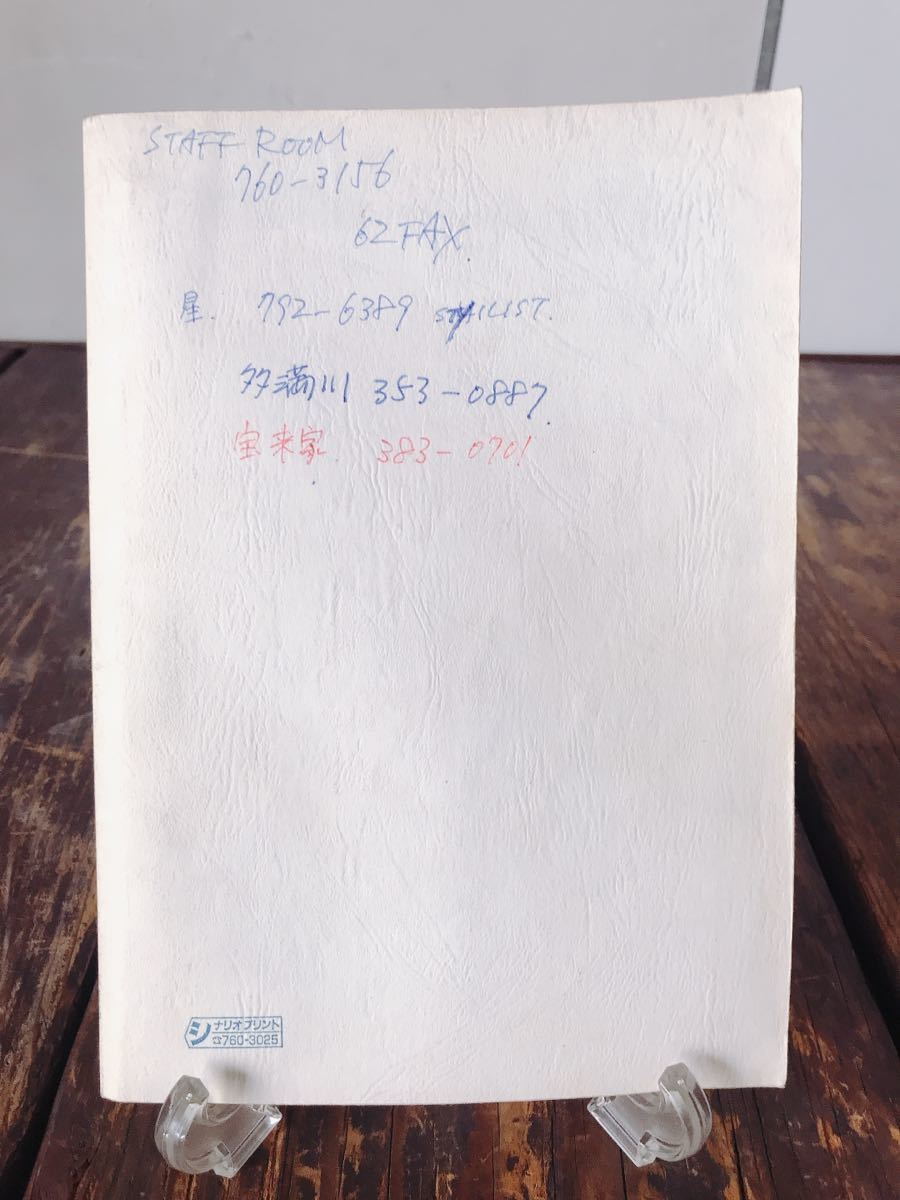 STAFF ROOM
760-3156
62 FAX.
星. 792-6389 STYLIST.
多満川 353-0887
宝来家. 383-0701
シナリオプリント
☎760-3025